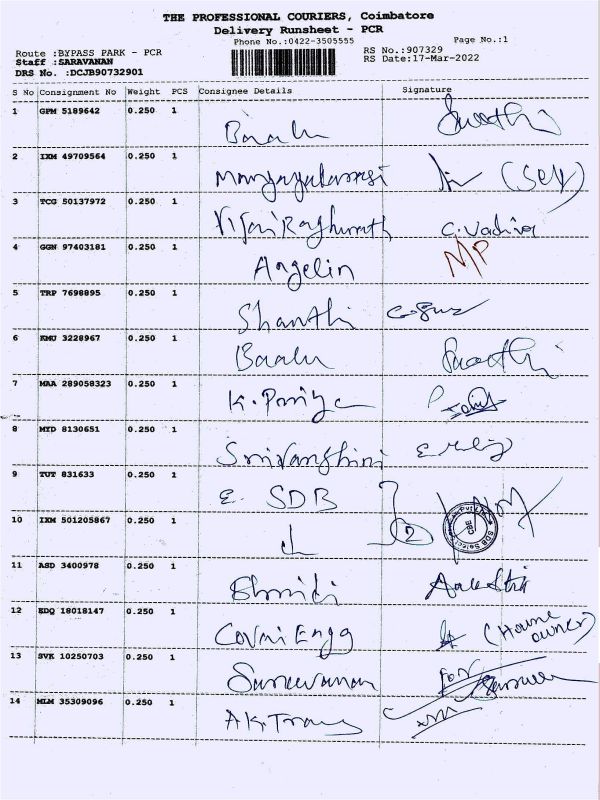 THE PROFESSIONAL COURIERS, Coimbatore
Delivery Runsheet - PCR
Phone No.:0422-3505555 Page No.:1
Route :BYPASS PARK - PCR RS No.:907329
Staff :SARAVANAN RS Date:17-Mar-2022
DRS No. :DCJB90732901
S No Consignment No Weight PCS Consignee Details Signature
1 GPM 5189642 0.250 1 Baalu
2 IXM 49709564 0.250 1 (Self)
3 TCG 50137972 0.250 1 C. Vadivel
4 GGN 97403181 0.250 1 Angelin MP
5 TRP 7698895 0.250 1 Shanthi
6 KMU 3228967 0.250 1 Baalu
7 MAA 289058323 0.250 1 K. Priya
8 MYD 8130651 0.250 1
9 TUT 831633 0.250 1 E. SDB
10 IXM 501205867 0.250 1 2 CBE
11 ASD 3400978 0.250 1
12 EDQ 18018147 0.250 1 Covai Engg (House owner)
13 SVK 10250703 0.250 1 Saravanan for
14 MLM 35309096 0.250 1